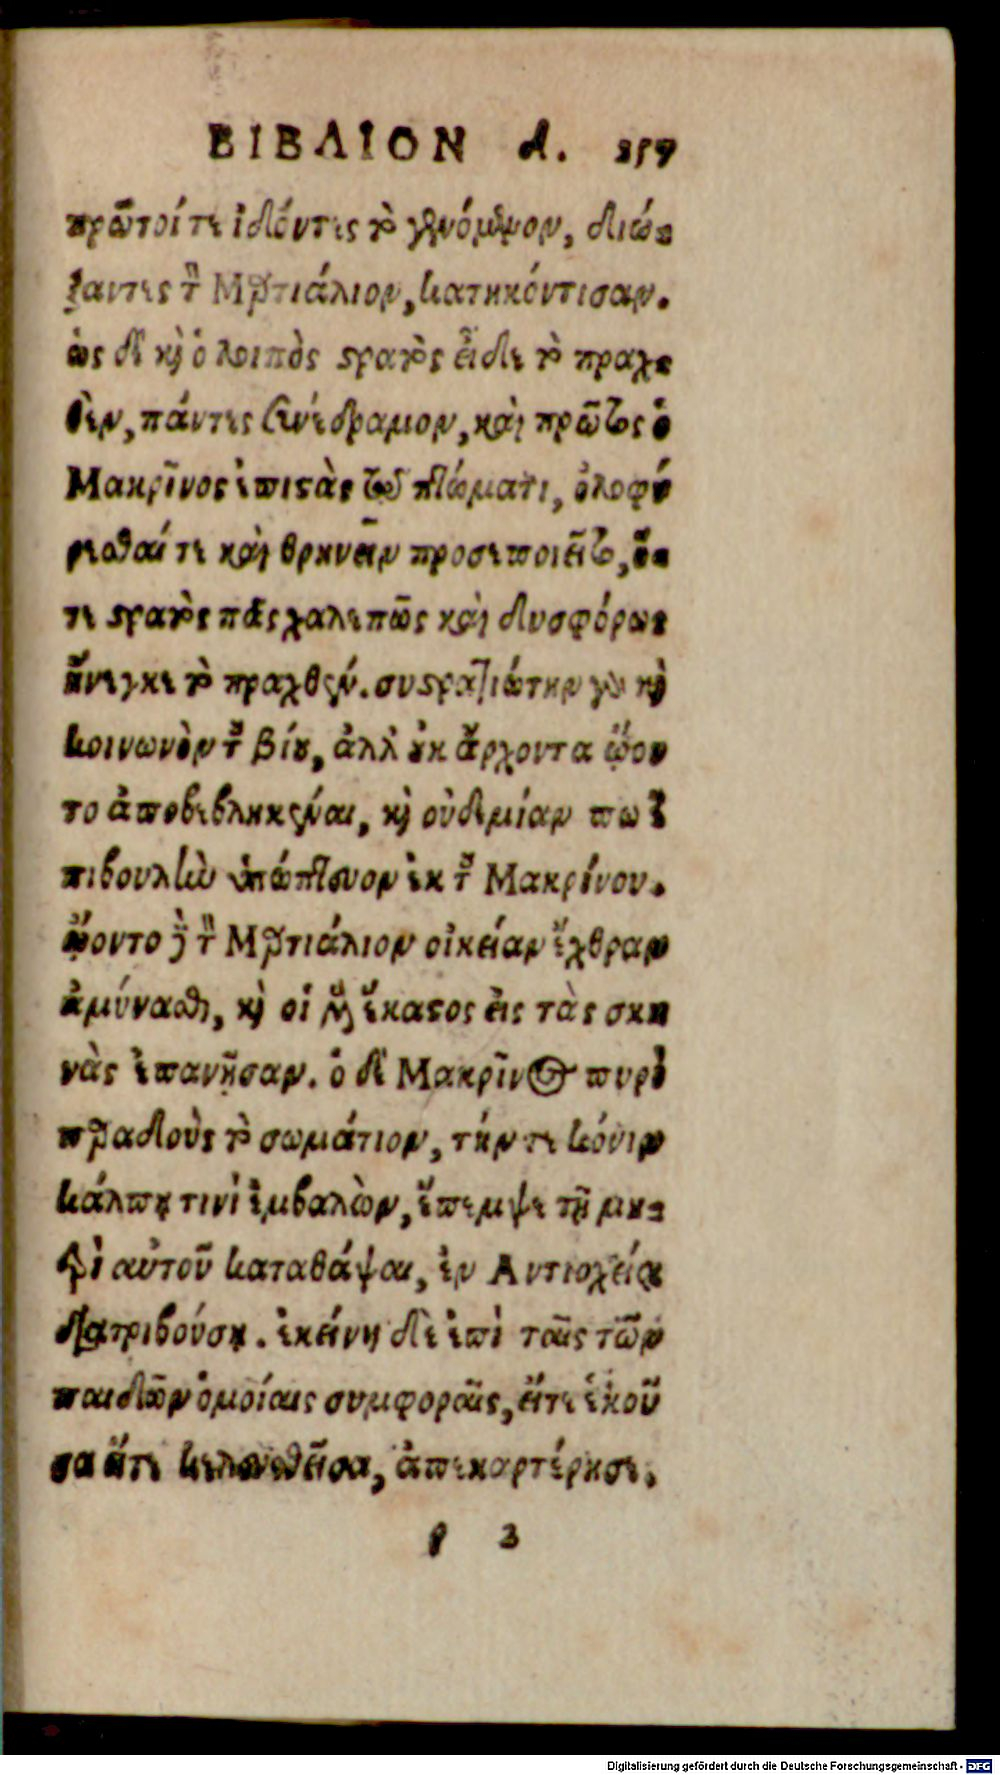 ΒΙΒΛΙΟΝ Δ. 257
πρῶτοί τε ἰδόντες τὸ γενόμενον, διώ-
ξαντες τὸν Μαρτιάλιον, κατηκόντισαν.
ὡς δὲ καὶ ὁ λοιπὸς στρατὸς εἶδε τὸ πραχ-
θὲν, πάντες συνέδραμον, καὶ πρῶτος ὁ
Μακρῖνος ἐπιστὰς τῷ πτώματι, ὀλοφύ
ρεσθαί τε καὶ θρηνεῖν προσεποιεῖτο, ὅ-
τε στρατὸς πᾶς χαλεπῶς καὶ δυσφόρως
ἤνεγκε τὸ πραχθέν. συστρατιώτην γὰρ καὶ
κοινωνὸν τοῦ βίου, ἀλλ' οὐκ ἄρχοντα ᾤον
το ἀποβεβληκέναι, καὶ οὐδεμίαν πω ἐ
πιβουλὴν ὑπώπτευον ἐκ τοῦ Μακρίνου.
ᾤοντο δὲ τὸν Μαρτιάλιον οἰκείαν ἔχθραν
ἀμύνασθαι, καὶ οἱ μὲν ἕκαστος εἰς τὰς σκη
νὰς ἐπανῄεσαν. ὁ δὲ Μακρῖνος πυρὶ
παραδοὺς τὸ σωμάτιον, τήν τε κόνιν
κάλπῃ τινὶ ἐμβαλὼν, ἔπεμψε τῇ μη-
τρὶ αὐτοῦ καταθάψαι, ἐν Αντιοχείᾳ
διατριβούσῃ. ἐκείνη δὲ ἐπὶ ταῖς τῶν
παιδῶν ὁμοίαις συμφοραῖς, εἴτε ἑκοῦ
σα εἴτε κελευσθεῖσα, ἀπεκαρτέρησε.
ρ 3
Digitalisierung gefördert durch die Deutsche Forschungsgemeinschaft - DFG